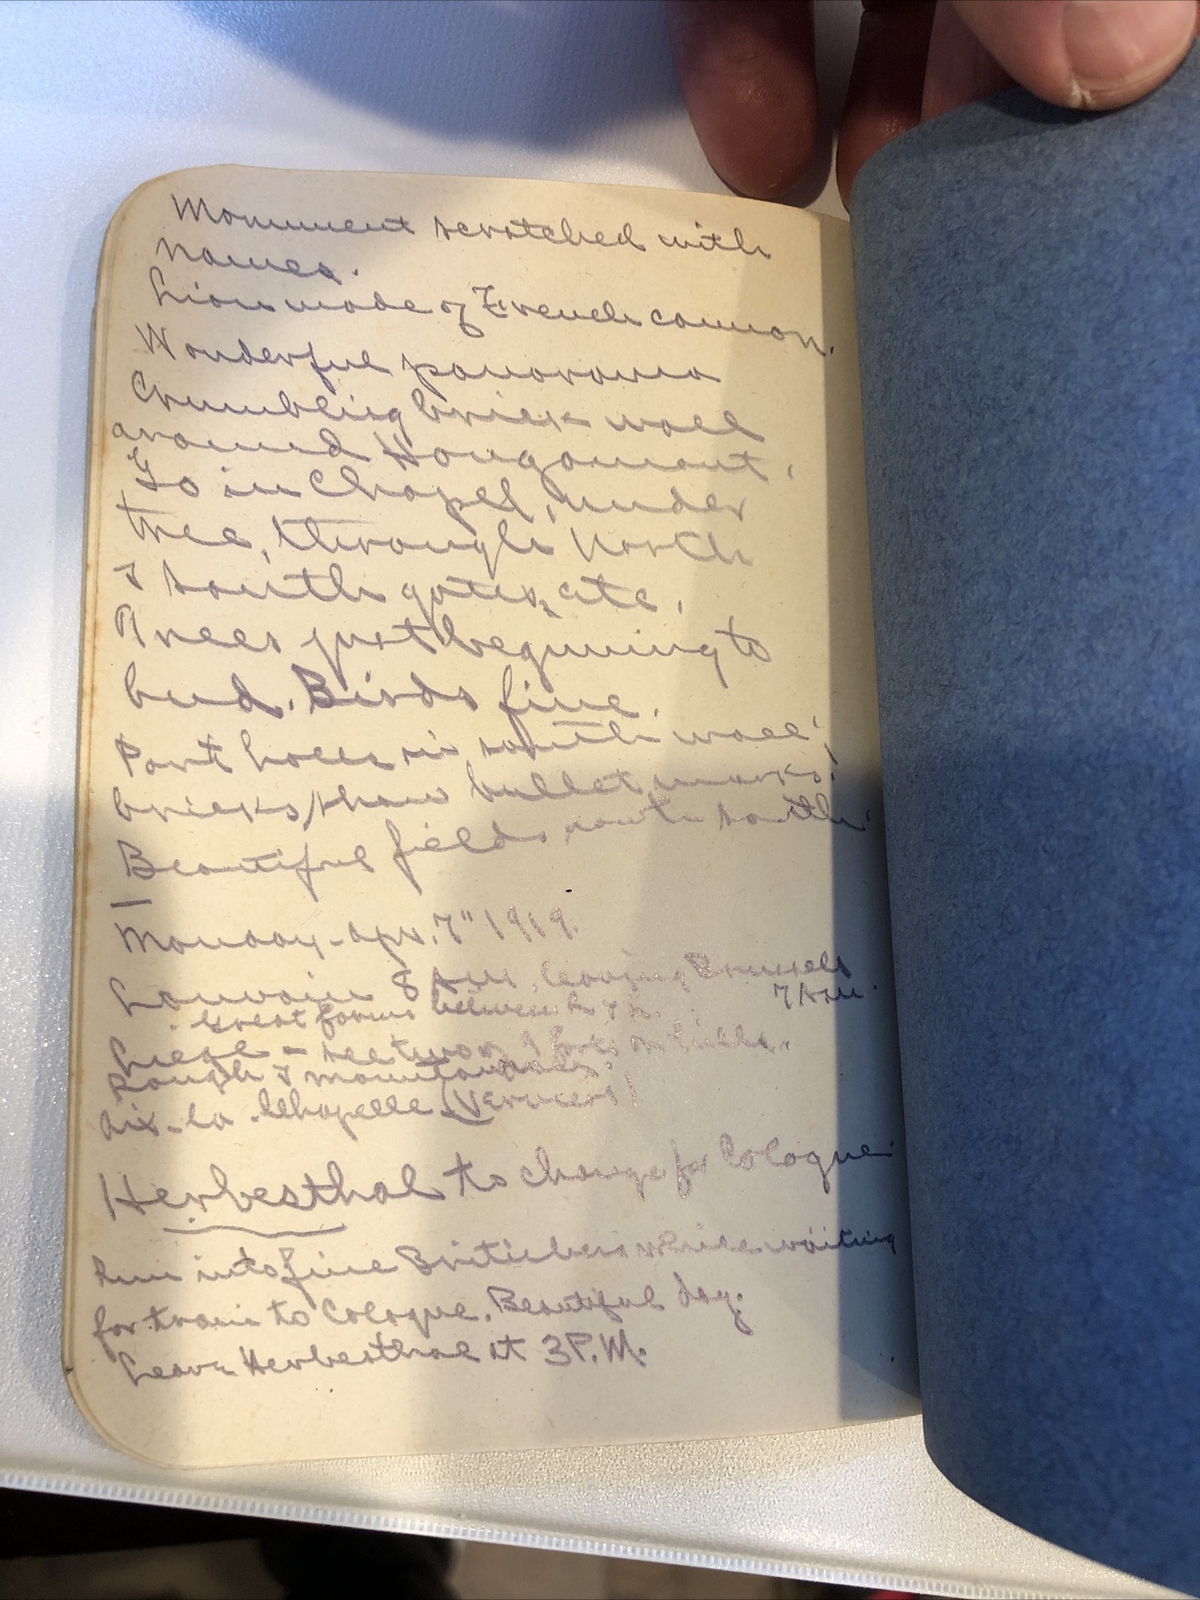 Monument scratched with
names.
Lion made of French cannon.
Wonderful panorama
Crumbling brick wall
around Hougomont.
Go in Chapel, under
tree, through North
& south gates, etc.
Trees just beginning to
bud. Birds fine.
Port holes in south wall;
bricks show bullet marks.
Beautiful fields south
Monday - Apr. 7" 1919.
Louvain 8 AM leaving Brussels
7 AM.
Great farms between B & L.
Liege - see two forts on hills.
Rough & mountainous.
Aix-la-Chapelle (Verviers)
Herbesthal to change for Cologne
Run into fine Britishers while waiting
for train to Cologne. Beautiful day.
Leave Herbesthal at 3 P.M.